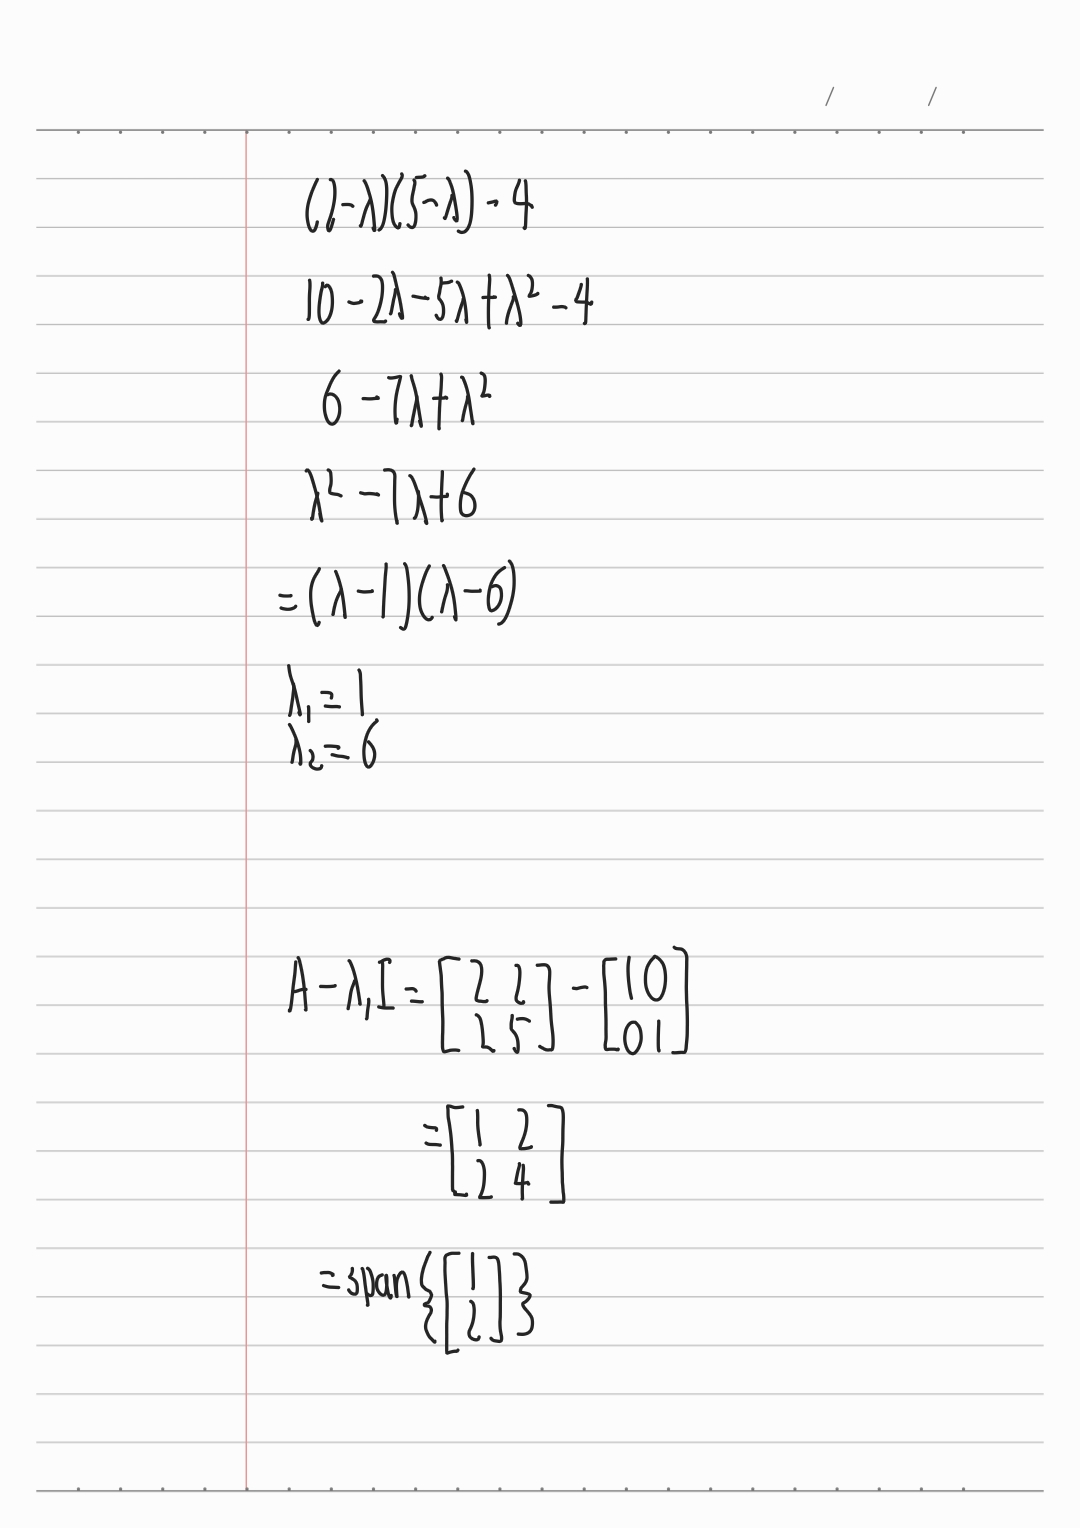 (2-λ)(5-λ) - 4
10 - 2λ - 5λ + λ² - 4
6 - 7λ + λ²
λ² - 7λ + 6
= (λ - 1)(λ - 6)
λ₁ = 1
λ₂ = 6
A - λ₁I = [2 2; 2 5] - [1 0; 0 1]
= [1 2; 2 4]
= span{[1; 2]}